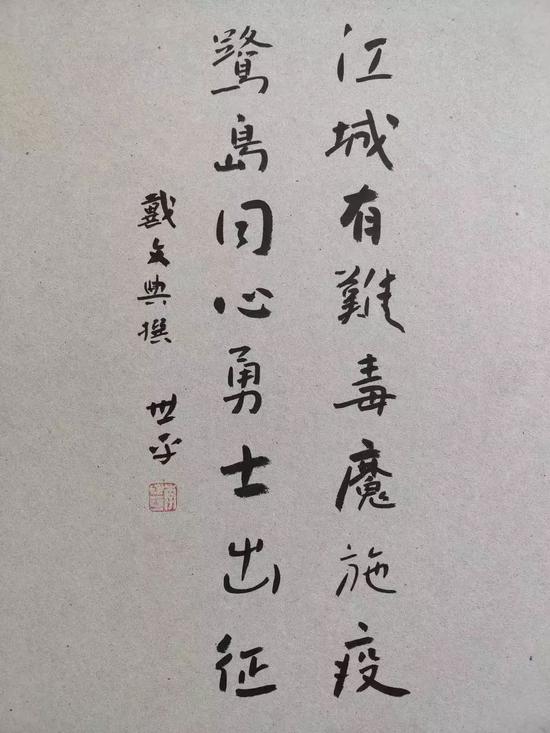 江城有難毒魔施疫
鷺島同心勇士出征
戴文典撰 世平